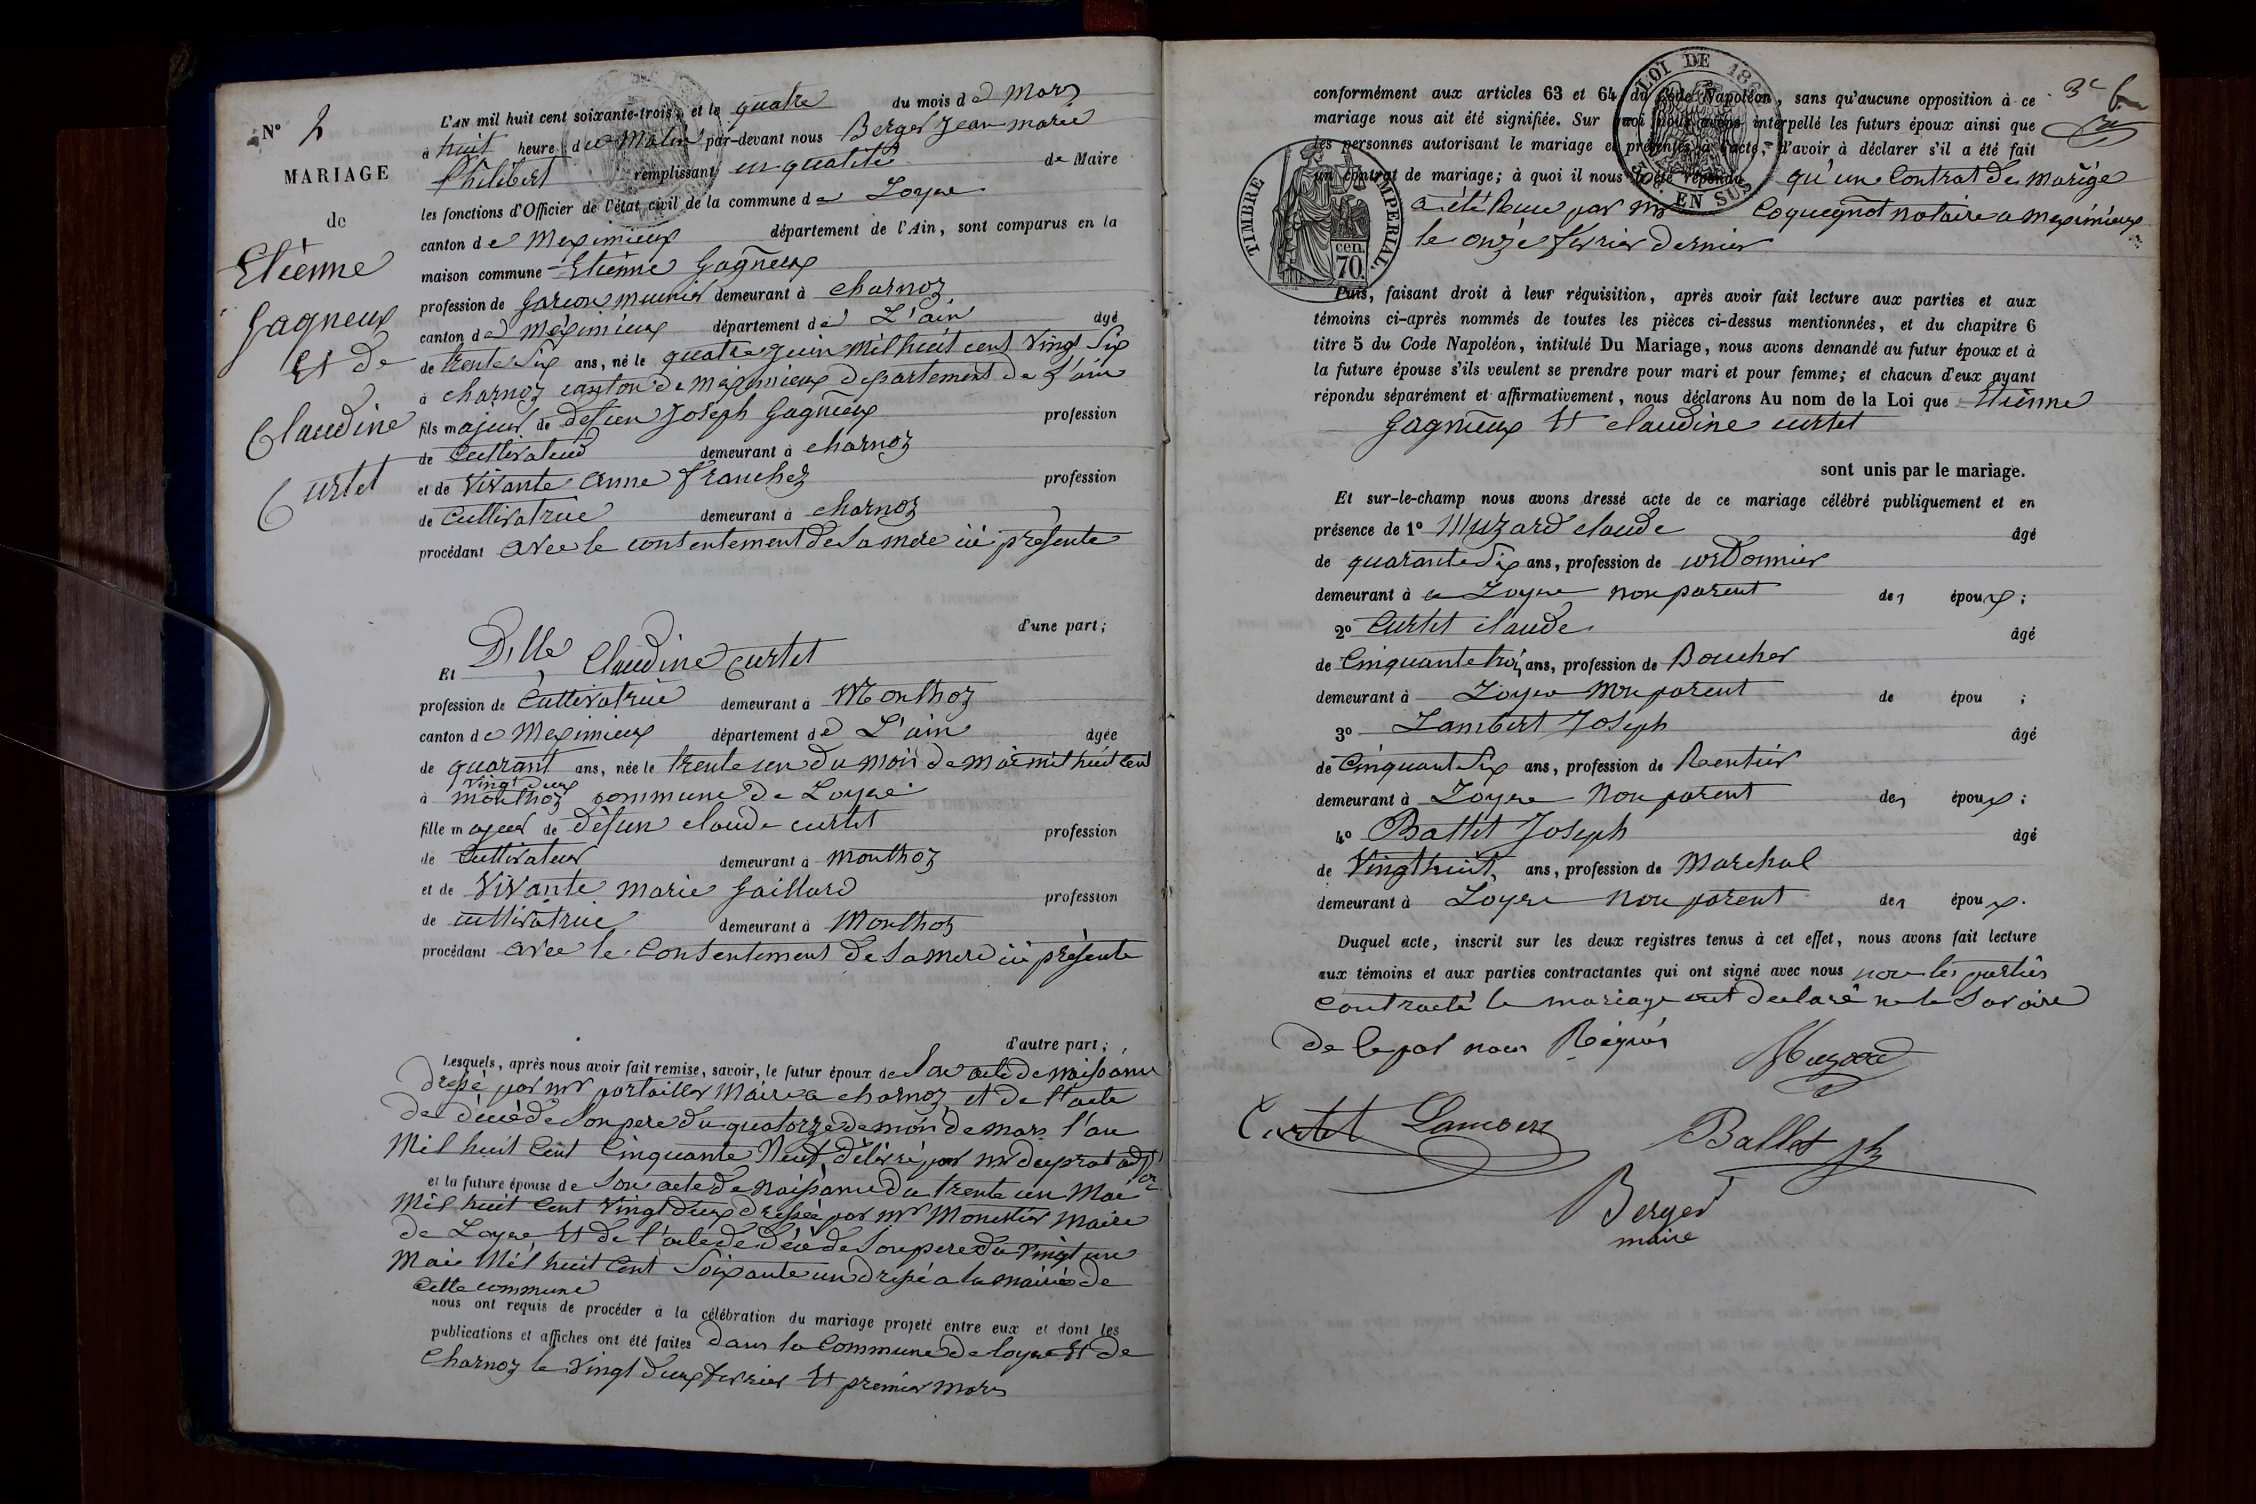 L'AN mil huit cent soixante-trois et le quatre du mois de Mars
à huit heure du Matin par-devant nous Berger Jean marie
Philibert remplissant en qualité de Maire
les fonctions d'Officier de l'état civil de la commune de Loyse
canton de Meximieux département de l'Ain, sont comparus en la
maison commune Etienne Gagneux
profession de garcon meunier demeurant à charnoz
canton de Meximieux département de L'ain âgé
de trente Six ans, né le quatre Juin Mil huit cent Vingt Six
à charnoz canton de meximieux departement de L'ain
fils majeur de defun Joseph Gagneux profession
de Cultivateur demeurant à charnoz
et de Vivante Anne Franchez profession
de Cultivatrice demeurant à charnoz
procédant avec le consentement de Sa mere ici presente
d'une part;
Et Dlle Claudine Curtet
profession de Cultivatrice demeurant à Monthoz
canton de Meximieux département de L'ain âgée
de quarant ans, née le trente un du mois de mai mil huit Cent
Vingt deux
à monthoz commune de Loyse
fille majeur de defun claude curtet profession
de Cultivateur demeurant à monthoz
et de Vivante marie Gaillard profession
de cultivatrice demeurant à Monthoz
procédant avec le Consentement de Sa mere ici présente
d'autre part;
Lesquels, après nous avoir fait remise, savoir, le futur époux de Son acte de naissance
dressé par mr portallier Maire a charnoz et de l'acte
de décè de Son pere du quatorze de moi de mars l'an
Mil huit Cent Cinquante Neuf délivré par mr duprat adj
et la future épouse de Son acte de naissance du trente un Mai
Mil huit Cent Vingt deux dressée par mr Monestier maire
de Loyse et de l'acte de décè de Son pere du Vingt un
Mai Mil huit Cent Soixante un dressé a la mairie de
Cette commune
nous ont requis de procéder à la célébration du mariage projeté entre eux et dont les
publications et affiches ont été faites dans la Commune de loyse et de
Charnoz le Vingt deux fevrier et premier mars
N° 2
MARIAGE
de
Etienne
Gagneux
et de
Claudine
Curtet
conformément aux articles 63 et 64 du Code Napoléon, sans qu'aucune opposition à ce
mariage nous ait été signifiée. Sur quoi nous avons interpellé les futurs époux ainsi que
les personnes autorisant le mariage et présentes à l'acte, d'avoir à déclarer s'il a été fait
un contrat de mariage; à quoi il nous a été répondu qu'un Contrat de marige
a été Recu par mr Coquegnot notaire a meximieux
le onze fevrier dernier
LOI DE 18
EN SUS
TIMBRE IMPERIAL
70 cen.
3e
Puis, faisant droit à leur réquisition, après avoir fait lecture aux parties et aux
témoins ci-après nommés de toutes les pièces ci-dessus mentionnées, et du chapitre 6
titre 5 du Code Napoléon, intitulé Du Mariage, nous avons demandé au futur époux et à
la future épouse s'ils veulent se prendre pour mari et pour femme; et chacun d'eux ayant
répondu séparément et affirmativement, nous déclarons Au nom de la Loi que Etienne
Gagneux Et claudine curtet
sont unis par le mariage.
Et sur-le-champ nous avons dressé acte de ce mariage célébré publiquement et en
présence de 1° Muzard claude âgé
de quarante Six ans, profession de cordonnier
demeurant à a Loyse non parent des époux;
2° Curtet claude âgé
de Cinquante troi ans, profession de Boucher
demeurant à Loyse Non parent de épou ;
3° Lambert Joseph âgé
de Cinquant Six ans, profession de Rentier
demeurant à Loyse Non parent des époux;
4° Ballet Joseph âgé
de Vingt huit ans, profession de Marchal
demeurant à Loyse non parent des époux.
Duquel acte, inscrit sur les deux registres tenus à cet effet, nous avons fait lecture
aux témoins et aux parties contractantes qui ont signé avec nous non les parties
contracté le mariage ont declaré ne le Savoire
de le par nous Réquis
Muzard
Curtet Lambert Ballet Jh
Berger
maire